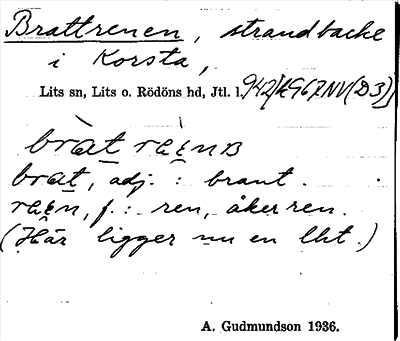 Brattrenen, strandbacke
i Korsta,
Lits sn, Lits o. Rödöns hd, Jtl. l.
bràt ra
brat, adj. : brant.
f. : ren, åkerren.
(Här ligger nu en lht.)
A. Gudmundson 1936.